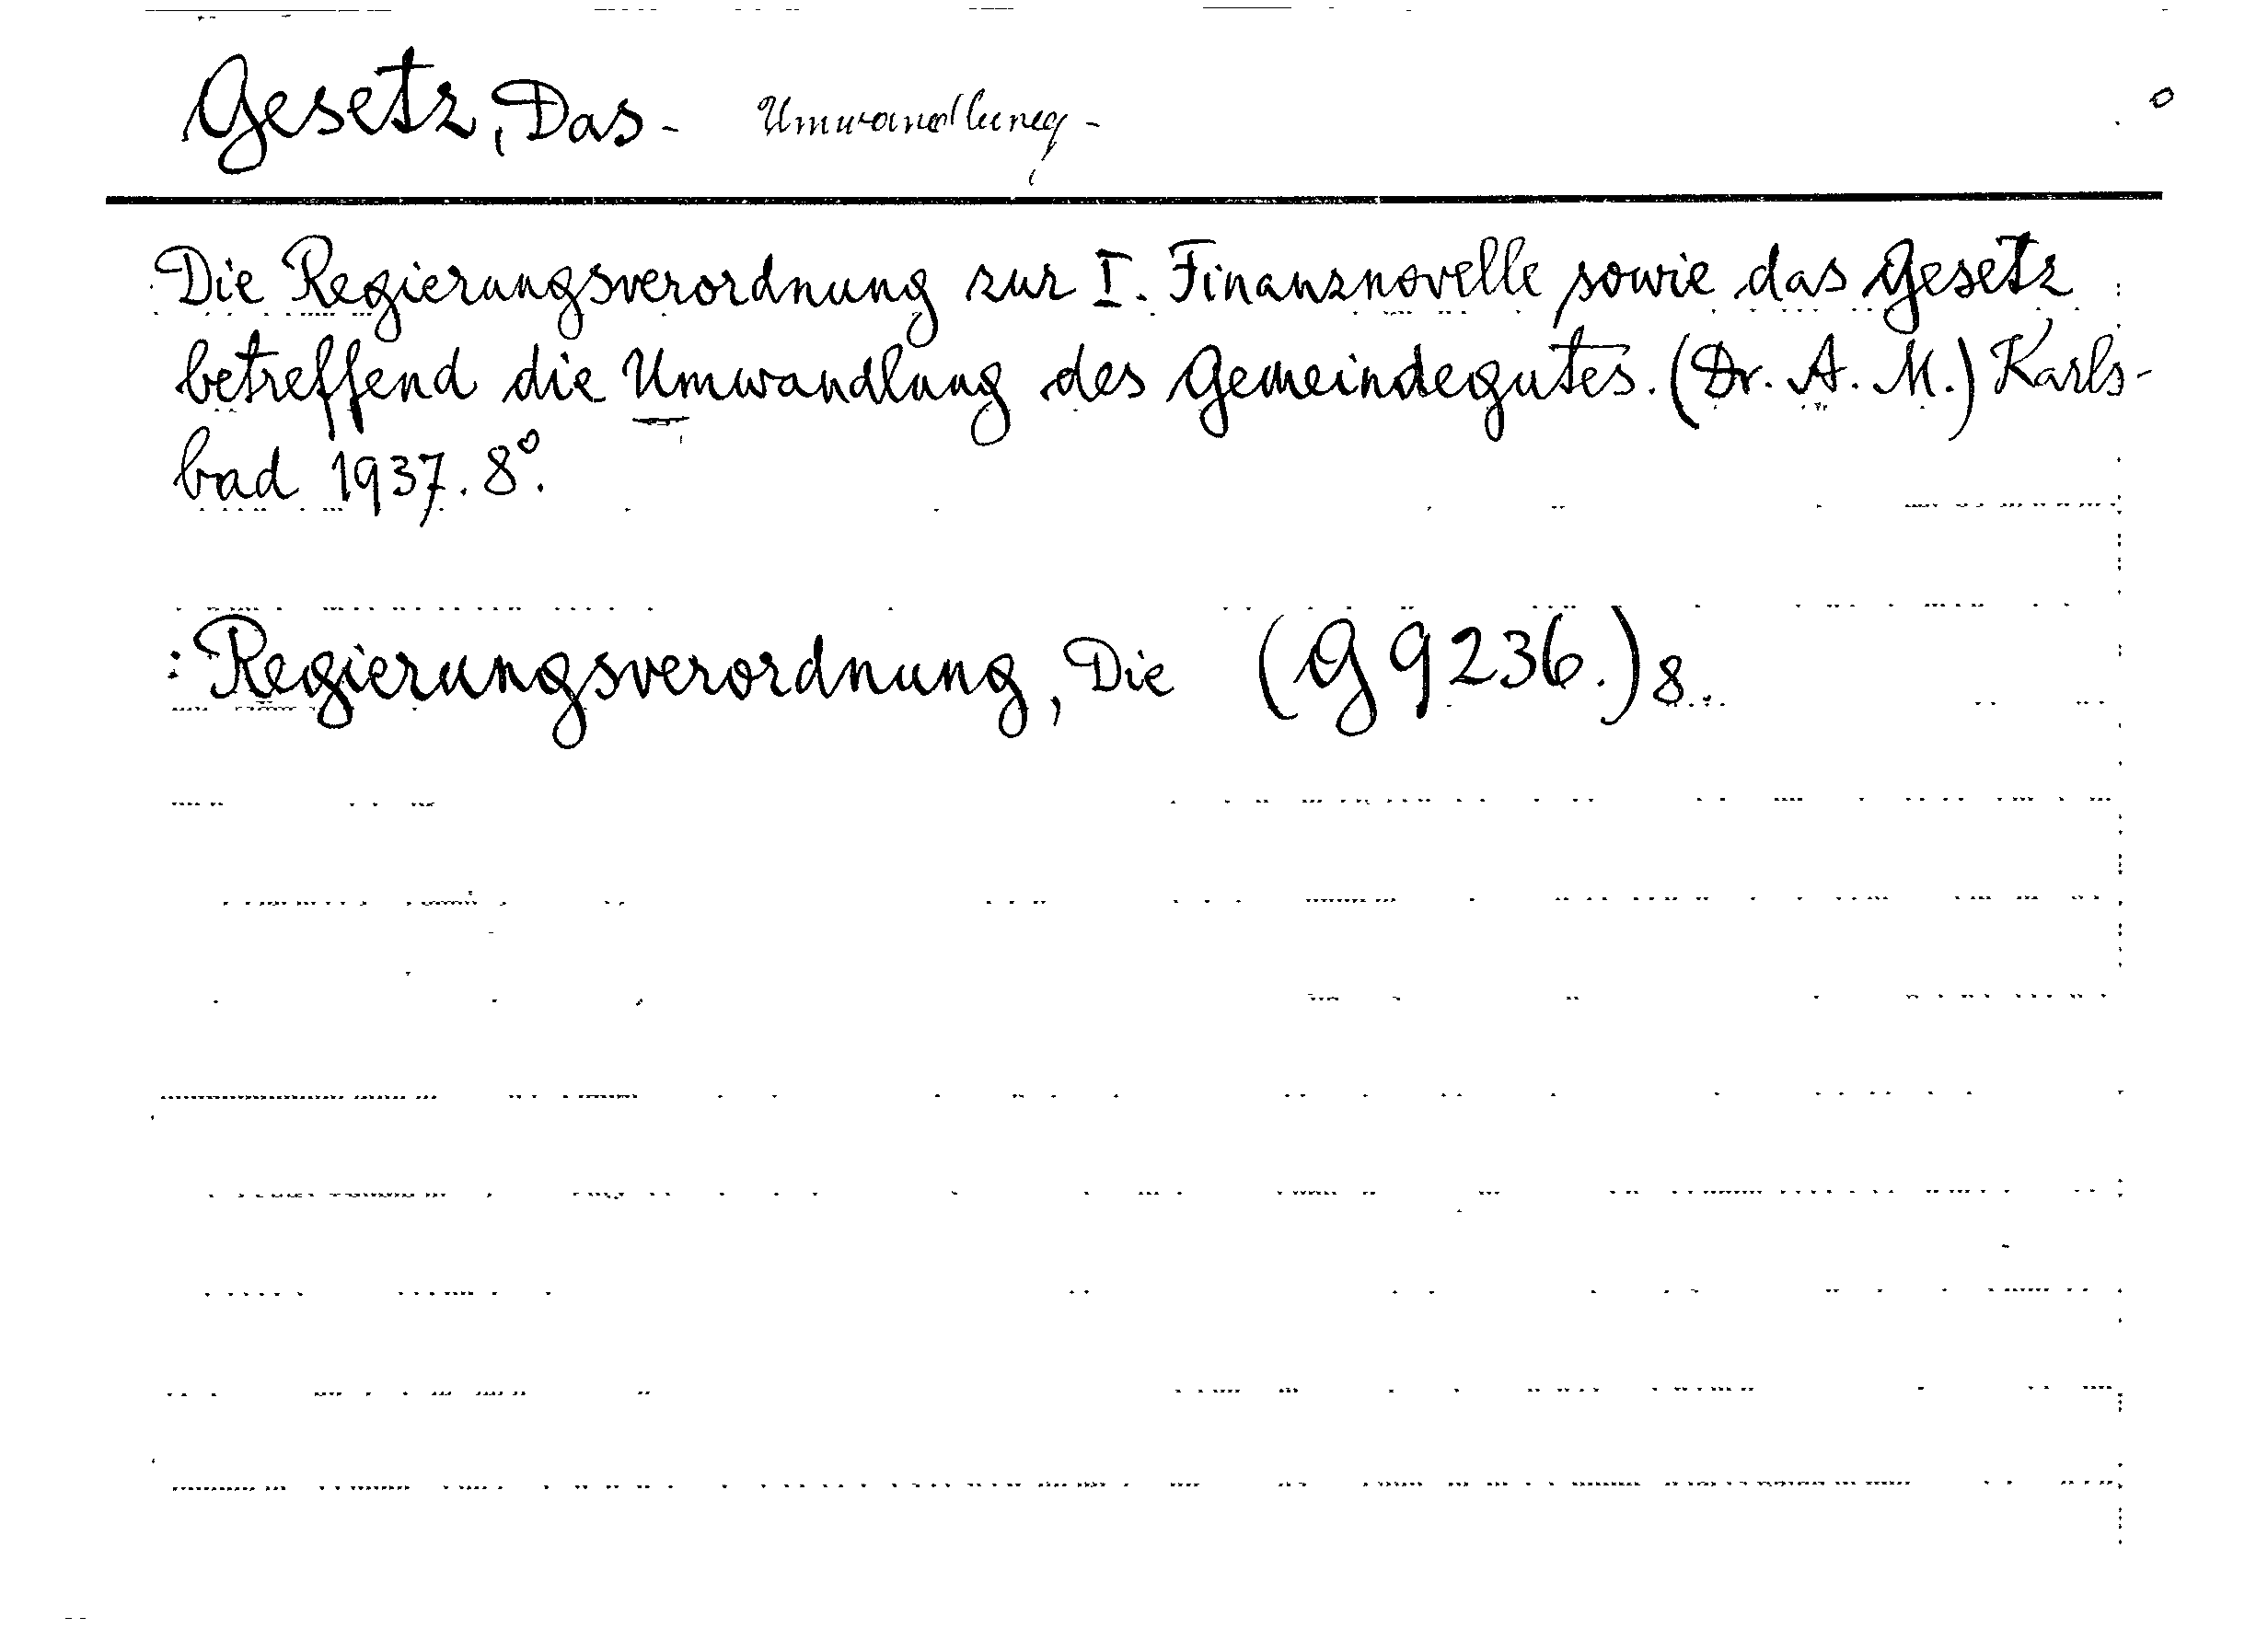 Gesetz, Das - Umwandlung -
Die Regierungsverordnung zur I. Finanznovelle sowie das Gesetz
betreffend die Umwandlung des Gemeindegutes. (Dr. A. M.) Karls-
bad 1937. 8°.
: Regierungsverordnung, Die (G 9236.) 8.